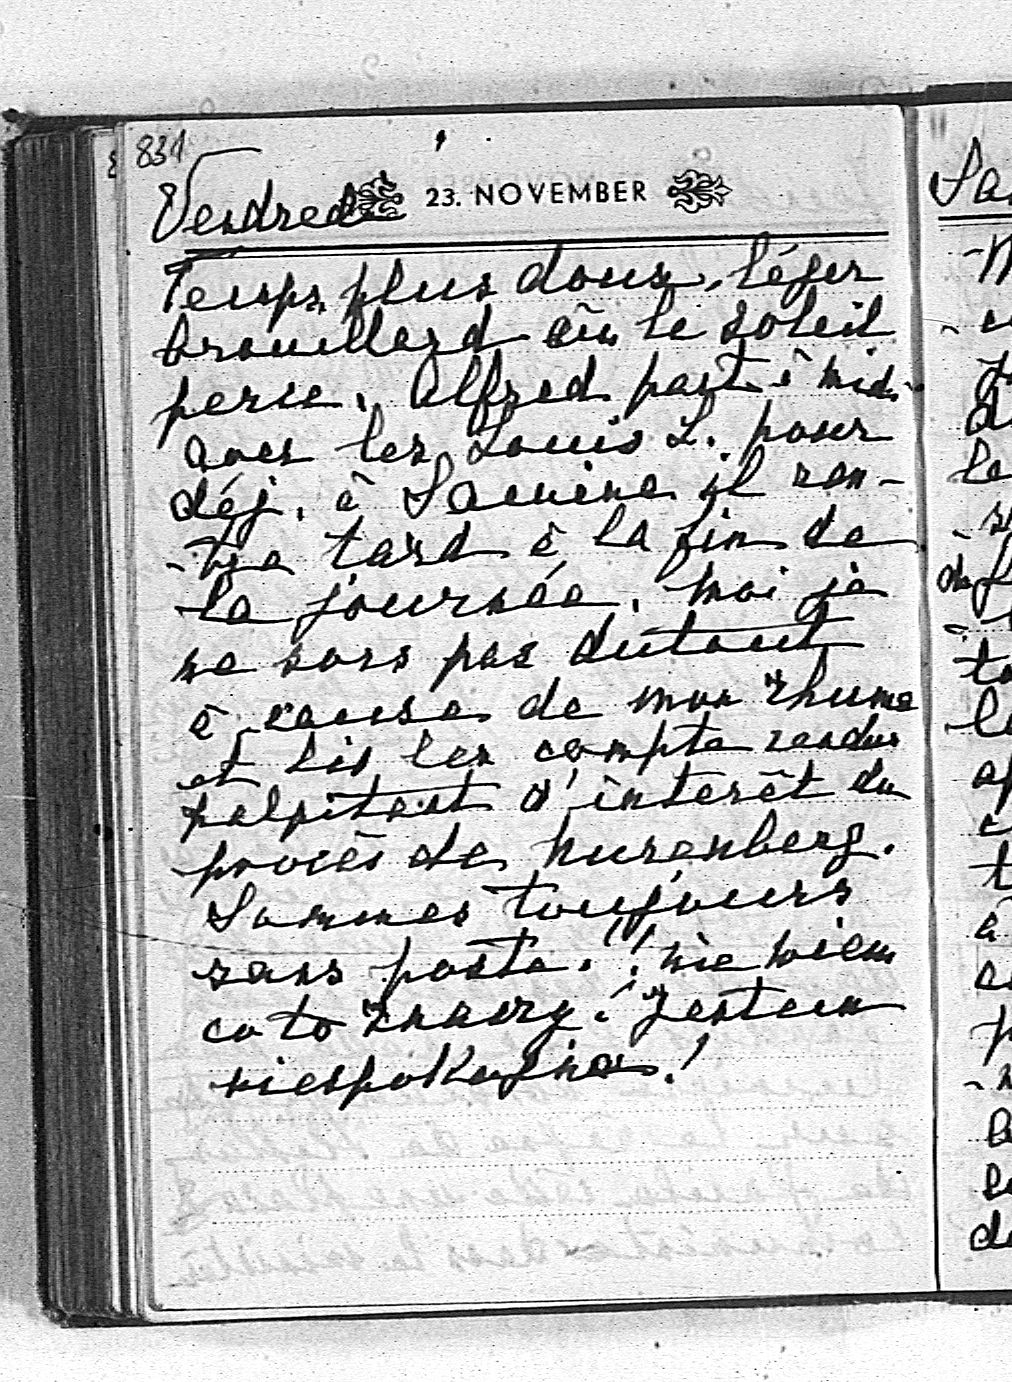 831
Vendredi 23. NOVEMBER
Temps plus doux, léger
brouillard où le soleil
perce. Alfred part à midi
avec les Louis L. pour
déj. à il ren-
-tre tard à la fin de
la journée. Moi je
ne sors pas dutout
à cause de mon rhume
et lis les compte rendus
palpitant d'intérêt du
procès de Nurenberg.
Sommes toujours
sans poste.!! nie wiem
co to znaczy! Jestem
niespokojna!